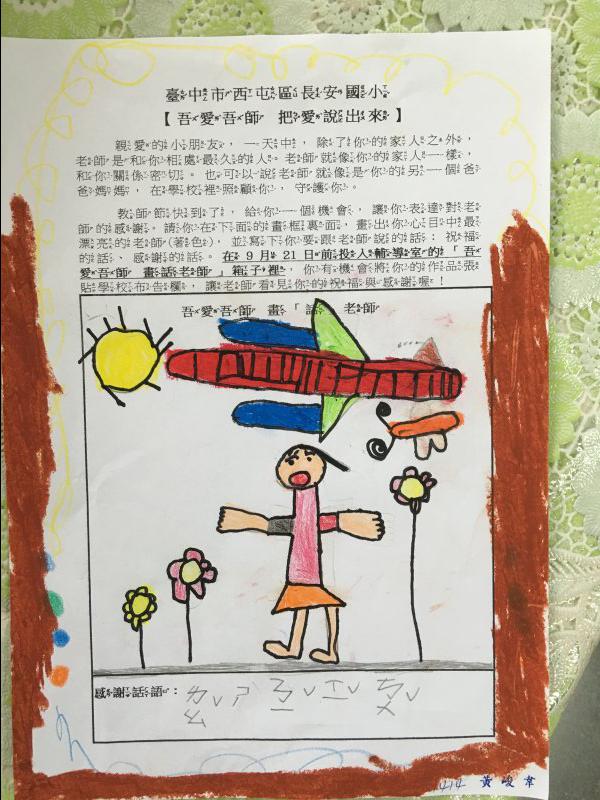 臺中市西屯區長安國小
【吾愛吾師 把愛說出來】
親愛的小朋友,一天中,除了你的家人之外,
老師是和你相處最久的人。老師就像你的家人一樣,
和你關係密切。也可以說老師就像是你的另一個爸
爸媽媽,在學校裡照顧你,守護你。
教師節快到了,給你一個機會,讓你表達對老
師的感謝。請你在下面的畫框裏面,畫出你心目中最
漂亮的老師(著色),並寫下你要跟老師說的話:祝福
的話、感謝的話。在9月21日前投入輔導室的「吾
愛吾師 畫話老師」箱子裡,你有機會將你的作品張
貼學校布告欄,讓老師看見你的祝福與感謝喔!
吾愛吾師 畫「話」老師
感謝話語:
ㄌㄠˇ ㄕ
414 黃峻韋